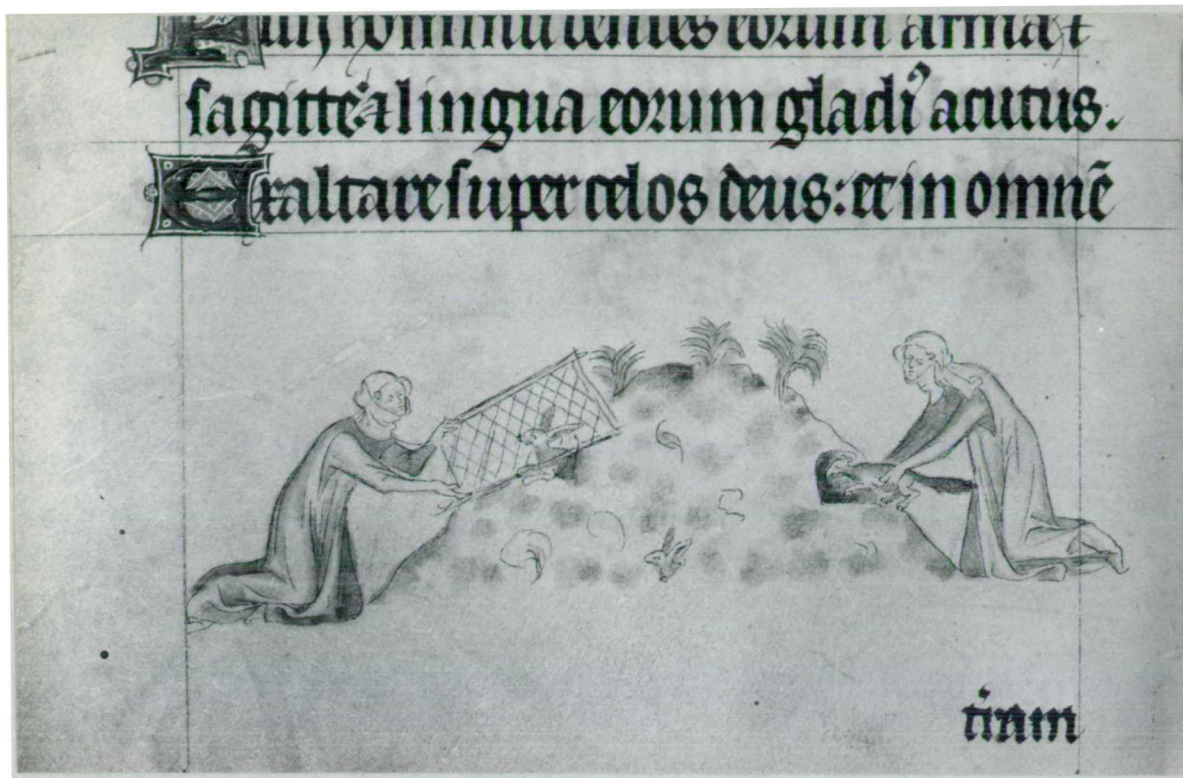 filij hominu dentes eorum arma ⁊
sagitte ⁊ lingua eorum gladiꝰ acutus.
Exaltare super celos deus: et in omnē